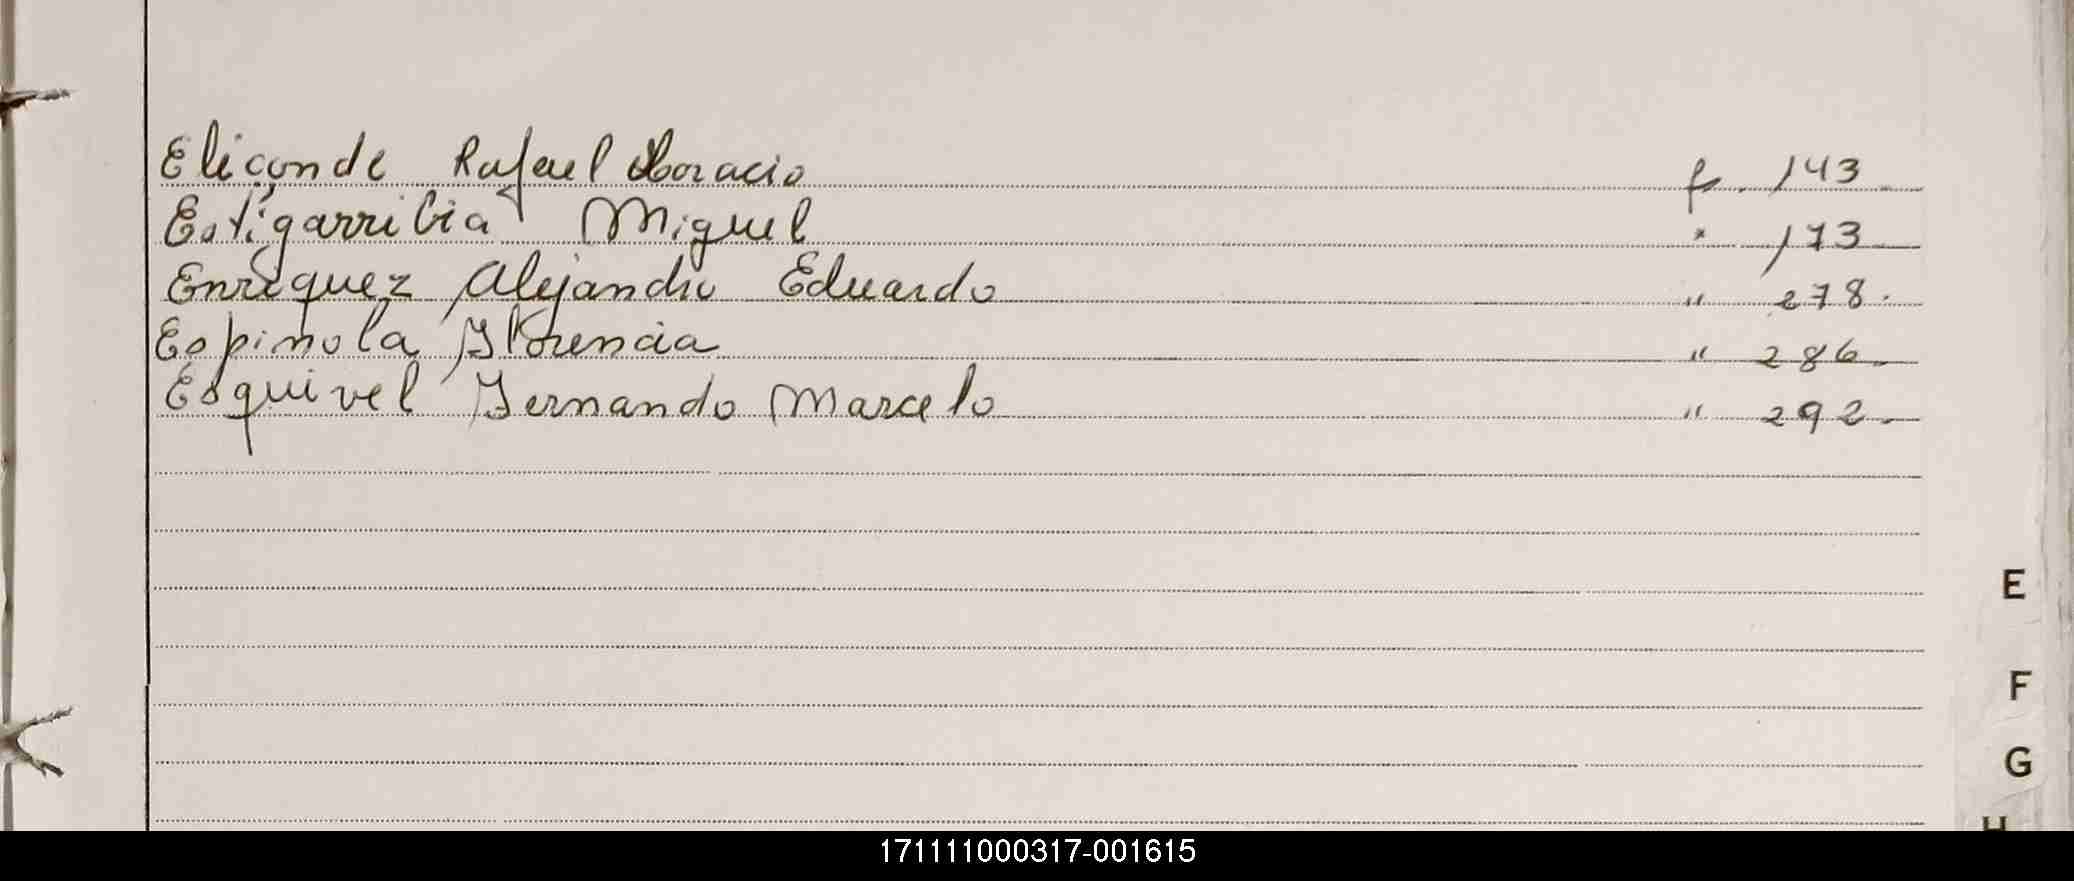 Eliconde Rafael Horacio f. 143
Estigarribia Miguel " 173
Enrequez Alejandro Eduardo " 278.
Espinola Florencia " 286
Esquivel Fernando Marcelo " 292
E
F
G
H
171111000317-001615